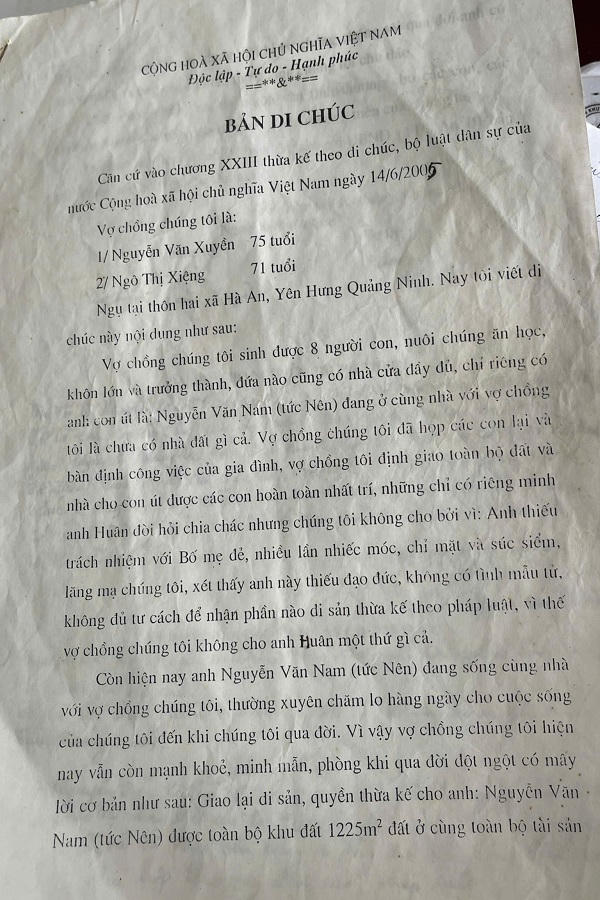 CỘNG HOÀ XÃ HỘI CHỦ NGHĨA VIỆT NAM
Độc lập - Tự do - Hạnh phúc
==**&**==
BẢN DI CHÚC
Căn cứ vào chương XXIII thừa kế theo di chúc, bộ luật dân sự của
nước Cộng hoà xã hội chủ nghĩa Việt Nam ngày 14/6/2005
Vợ chồng chúng tôi là:
1/ Nguyễn Văn Xuyền 75 tuổi
2/ Ngô Thị Xiêng 71 tuổi
Ngụ tại thôn hai xã Hà An, Yên Hưng Quảng Ninh. Nay tôi viết di
chúc này nội dung như sau:
Vợ chồng chúng tôi sinh được 8 người con, nuôi chúng ăn học,
khôn lớn và trưởng thành, đứa nào cũng có nhà cửa đầy đủ, chỉ riêng có
anh con út là: Nguyễn Văn Nam (tức Nên) đang ở cùng nhà với vợ chồng
tôi là chưa có nhà đất gì cả. Vợ chồng chúng tôi đã họp các con lại và
bàn định công việc của gia đình, vợ chồng tôi định giao toàn bộ đất và
nhà cho con út được các con hoàn toàn nhất trí, những chỉ có riêng mình
anh Huân đòi hỏi chia chác nhưng chúng tôi không cho bởi vì: Anh thiếu
trách nhiệm với Bố mẹ đẻ, nhiều lần nhiếc móc, chỉ mặt và súc siểm,
lăng mạ chúng tôi, xét thấy anh này thiếu đạo đức, không có tình mẫu tử,
không đủ tư cách để nhận phần nào di sản thừa kế theo pháp luật, vì thế
vợ chồng chúng tôi không cho anh Huân một thứ gì cả.
Còn hiện nay anh Nguyễn Văn Nam (tức Nên) đang sống cùng nhà
với vợ chồng chúng tôi, thường xuyên chăm lo hàng ngày cho cuộc sống
của chúng tôi đến khi chúng tôi qua đời. Vì vậy vợ chồng chúng tôi hiện
nay vẫn còn mạnh khoẻ, minh mẫn, phòng khi qua đời đột ngột có mấy
lời cơ bản như sau: Giao lại di sản, quyền thừa kế cho anh: Nguyễn Văn
Nam (tức Nên) được toàn bộ khu đất 1225m² đất ở cùng toàn bộ tài sản